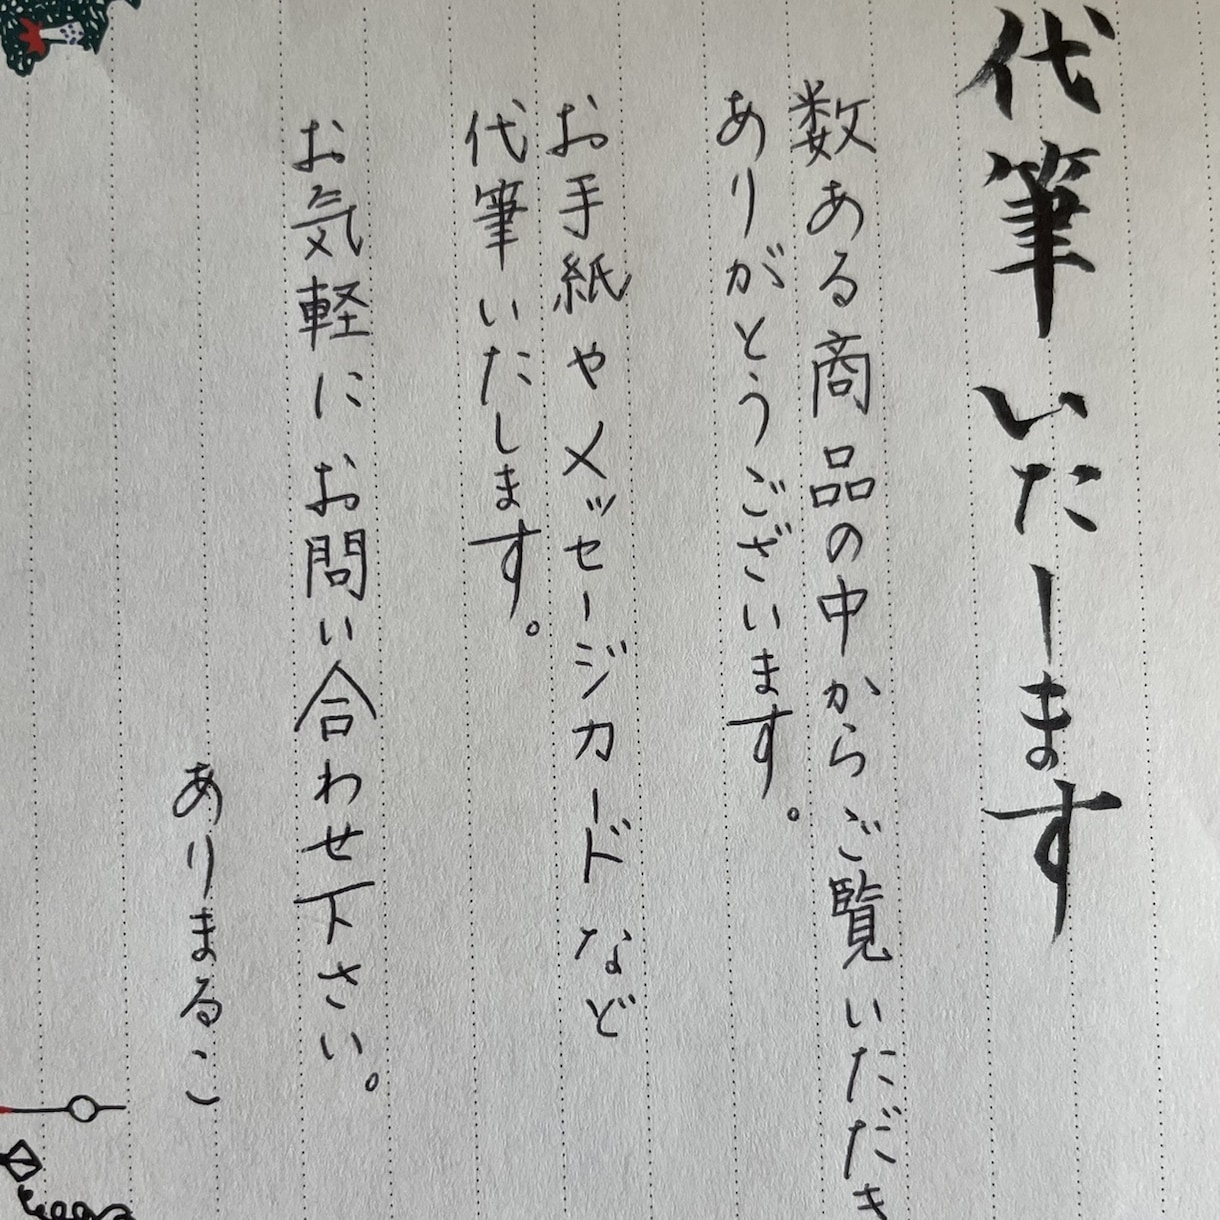 代筆いたします
数ある商品の中からご覧いただき
ありがとうございます。
お手紙やメッセージカードなど
代筆いたします。
お気軽にお問い合わせ下さい。
ありまるこ